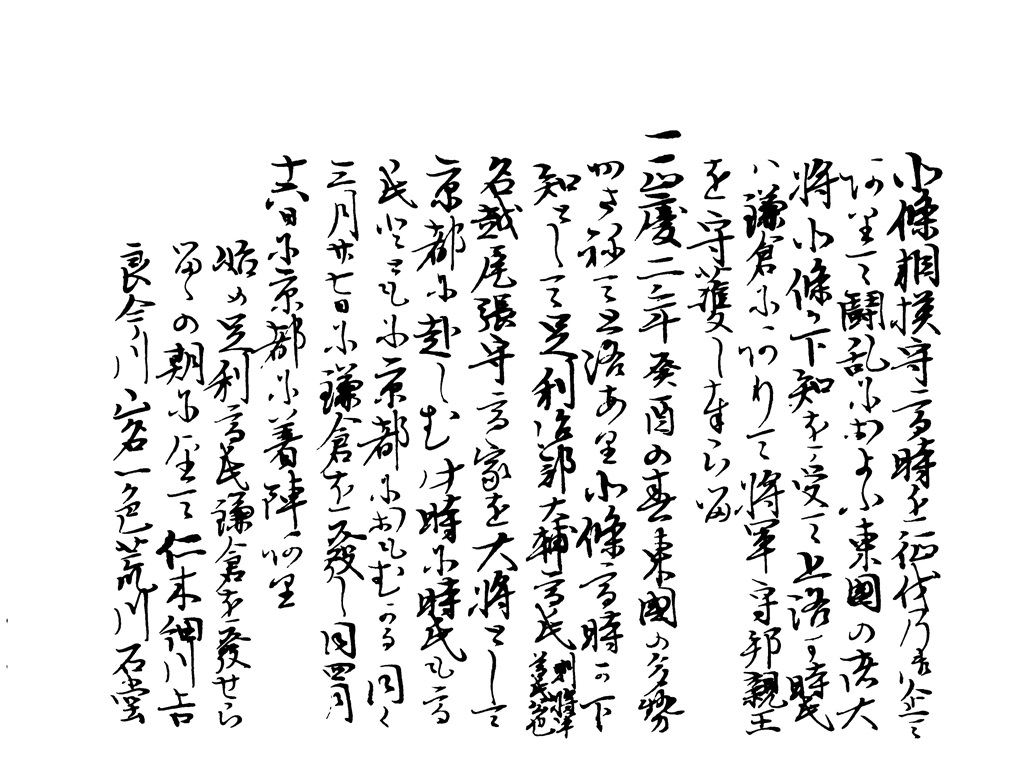 北條相摸守高時を征伐乃着企て
ありて闘乱におよふ東國の諸大
将北條か下知を受て上洛す時氏
ハ鎌倉にありて将軍守邦親王
を守護し奉らる
一正慶二年癸酉の春東國の多勢
かさねて上洛あり北條高時か下
知として足利治部大輔高氏
名越尾張守高家を大将として
京都に赴しむ此時に時氏も高
氏とともに京都におもむかる同く
三月廿七日に鎌倉を發し同四月
十六日に京都に着陣あり
始め足利高氏鎌倉を發せら
るゝの朝に至て仁木細川吉
良今川山名一色荒川石堂